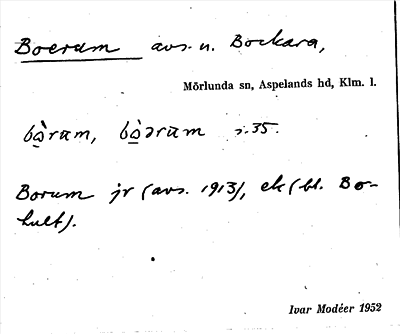 Boerum avs. u. Bockara,
Mörlunda sn, Aspelands hd, Klm. l.
bò̱rum, bò̱ərum s. 35.
Borum jr (avs. 1913), ek (bl. Bo-
hult).
Ivar Modéer 1952